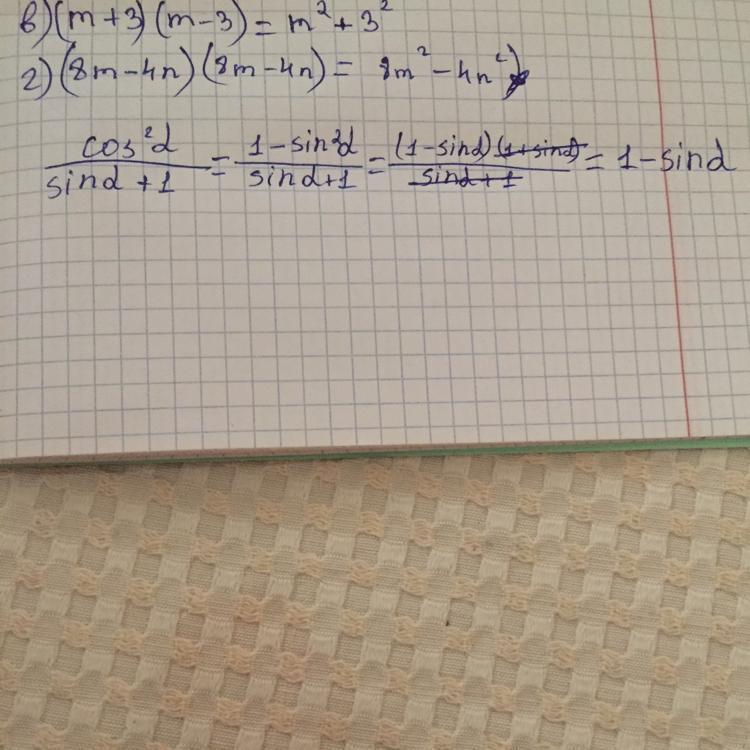 в) (m+3) (m-3) = m² + 3²
г) (8m-4n) (8m-4n) = 8m² - 4n²)
cos²α / sinα + 1 = 1-sin²α / sinα+1 = (1-sinα) (1+sinα) / sinα+1 = 1-sinα